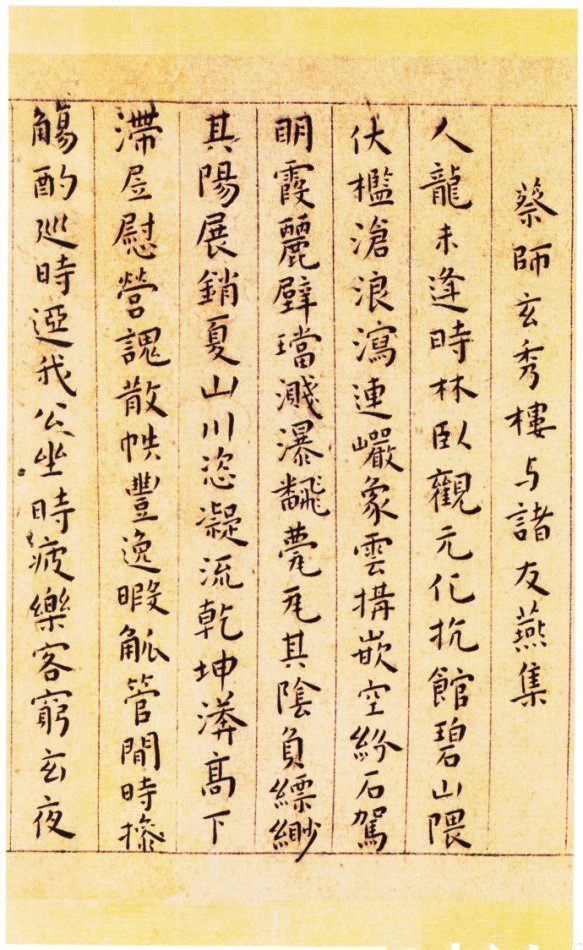 蔡師玄秀樓与諸友燕集
人龍未逢時林臥觀元化抗館碧山隈
伏檻滄浪瀉連巘象雲搆嵌空紛石駕
明霞麗璧璫濺瀑飜甍瓦其陰負縹緲
其陽展銷夏山川恣凝流乾坤漭高下
滯㞐慰營謥散帙豐逸暇觚管間時操
觴酌巡時迓我公坐時疲樂客窮玄夜